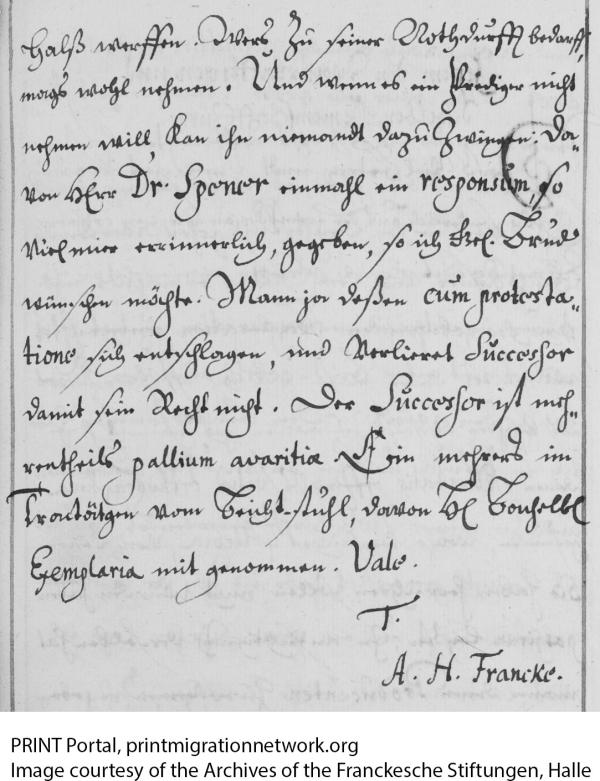 Halß werffen. Wers zu seiner Nothdurfft bedarff,
mags wohl nehmen. Und wenn es ein Prediger nicht
nehmen will, kan ihn niemandt dazu zwingen. Da-
von Herr Dr. Spener einmahl ein responsum, so
viel mir errinnerlich, gegeben, so ich Gel. Brud
wünschen möchte. Mann ja deßen cum protesta-
tione sich entschlagen, und verlieret Successor
damit sein Recht nicht. Der Successor ist meh-
rentheils pallium avaritiæ. Ein mehrers im
Tractätgen vom Beicht-stuhl, davon H
Exemplaria mit genommen. Vale.
T.
A. H. Francke.
PRINT Portal, printmigrationnetwork.org
Image courtesy of the Archives of the Franckesche Stiftungen, Halle